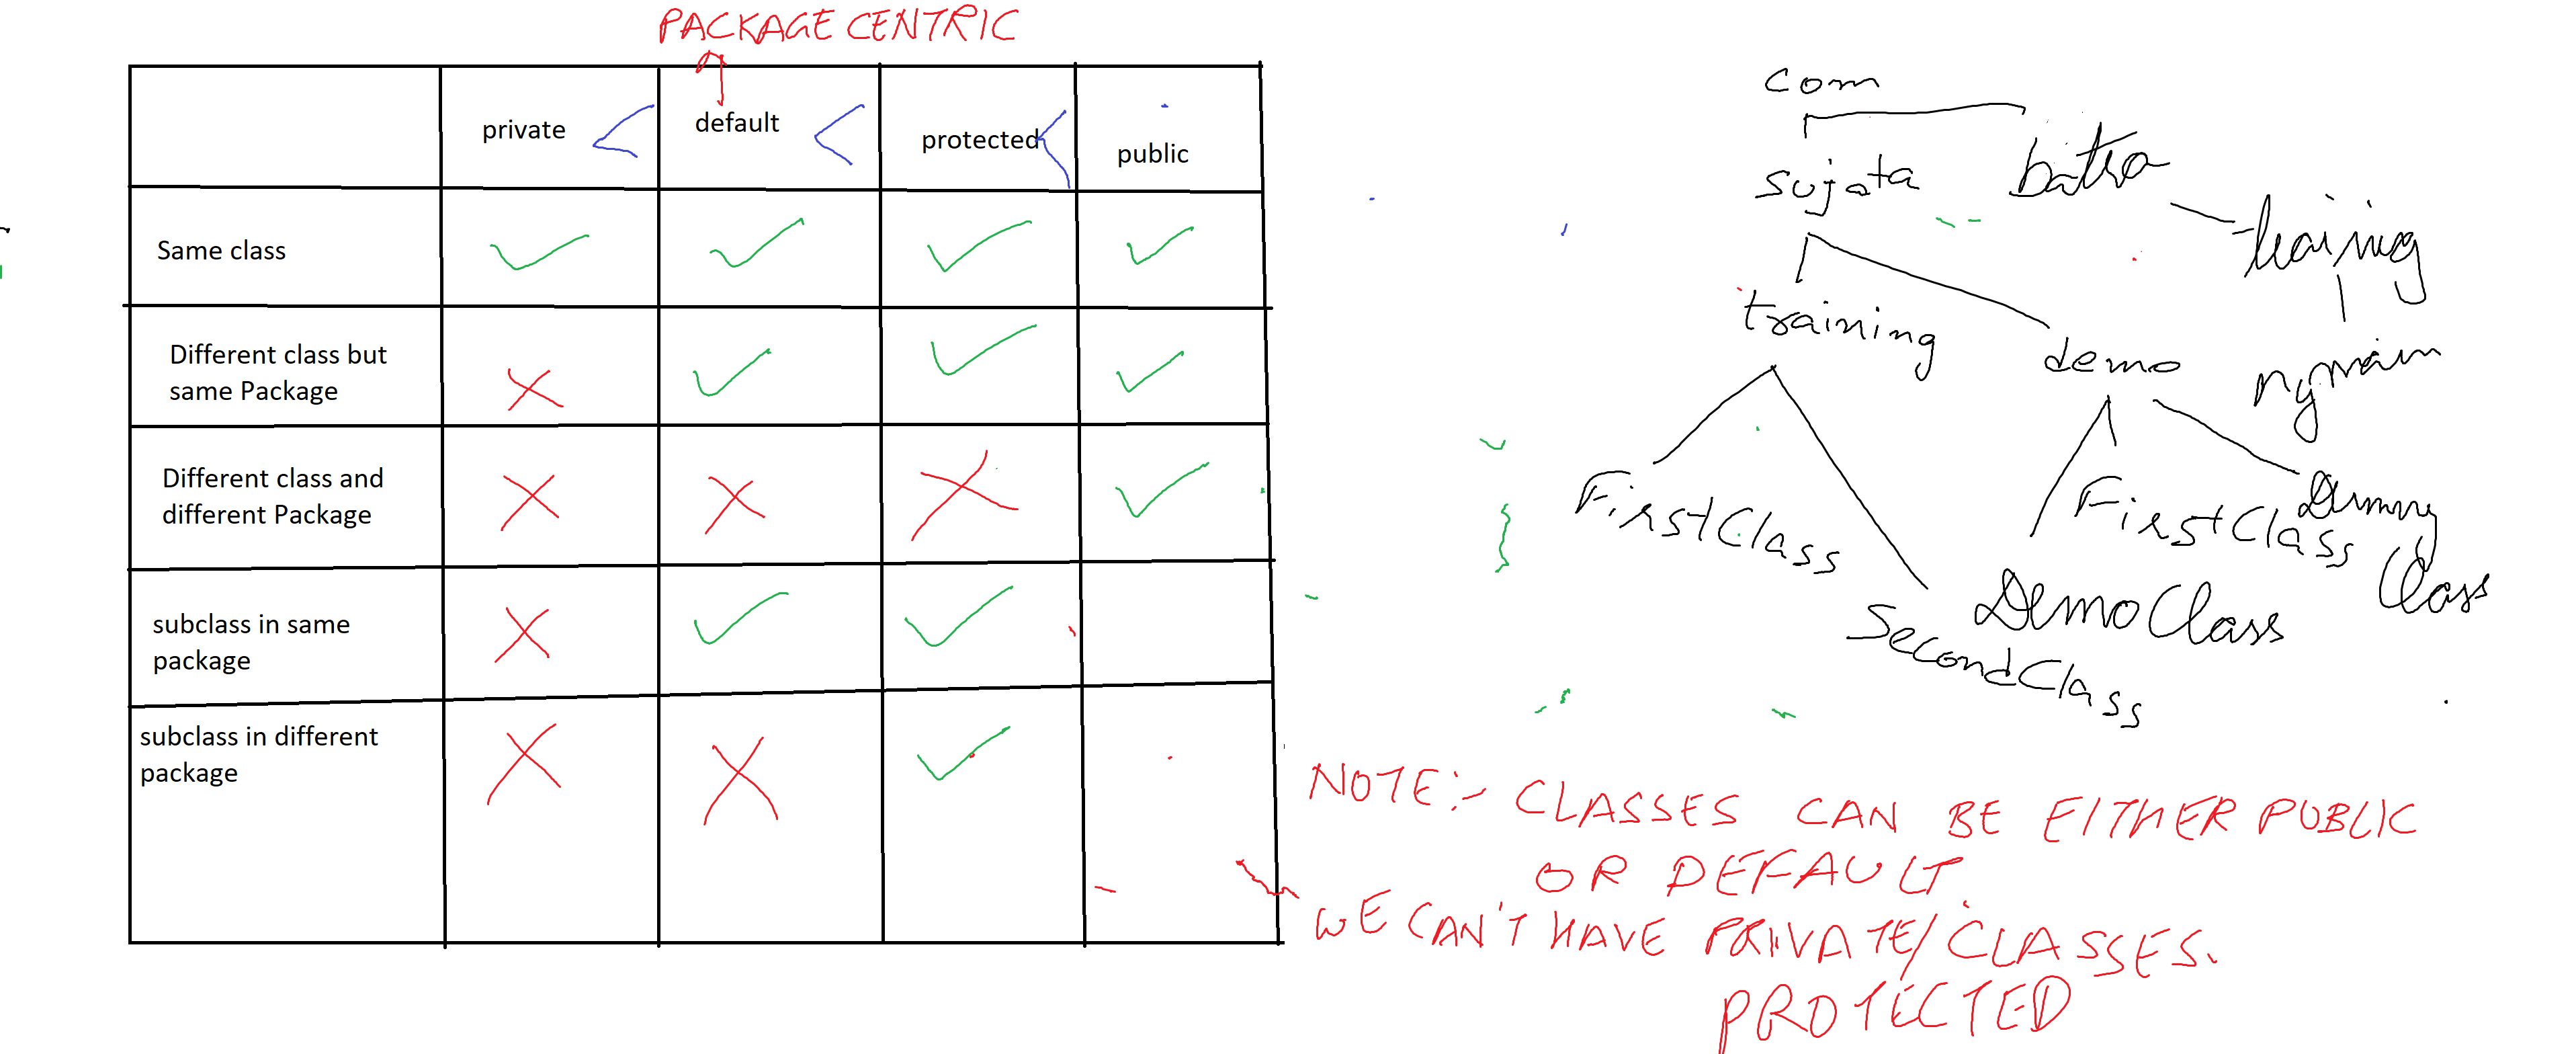 PACKAGE CENTRIC
private < default < protected < public
Same class ✓ ✓ ✓ ✓
Different class but
same Package ✗ ✓ ✓ ✓
Different class and
different Package ✗ ✗ ✗ ✓
subclass in same
package ✗ ✓ ✓
subclass in different
package ✗ ✗ ✓
com
sujata batra
training
training demo
FirstClass FirstClass Dummy
Class
DemoClass
SecondClass
NOTE:- CLASSES CAN BE EITHER PUBLIC
OR DEFAULT.
WE CAN'T HAVE PRIVATE/CLASSES.
PROTECTED